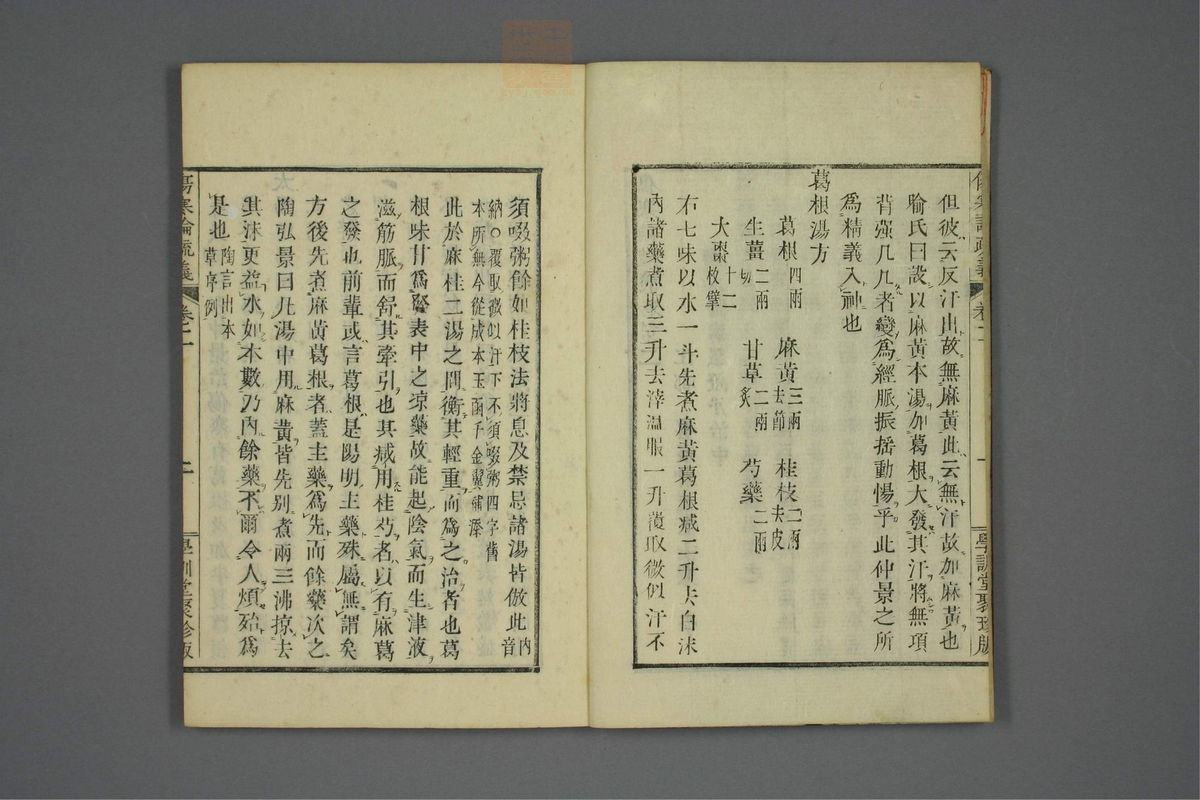 但彼云反汗出故無麻黃此云無汗故加麻黃也
喻氏曰設以麻黃本湯加葛根大發其汗將無項
背强几几者變爲經脈振搖動惕乎此仲景之所
爲精義入神也
葛根湯方
葛根四兩 麻黃三兩去節 桂枝二兩去皮
生薑二兩切 甘草二兩炙 芍藥二兩
大棗十二枚擘
右七味以水一斗先煮麻黃葛根減二升去白沫
內諸藥煮取三升去滓溫服一升覆取微似汗不
須啜粥餘如桂枝法將息及禁忌諸湯皆倣此內音
納○覆取微似汗下不須啜粥四字舊
本所無今從成本玉函千金翼補添
此於麻桂二湯之間衡其輕重而爲之治者也葛
根味甘爲解表中之凉藥故能起陰氣而生津液
滋筋脈而舒其牽引也其減用桂芍者以有麻葛
之發也前輩或言葛根是陽明主藥殊屬無謂矣
方後先煮麻黃葛根者蓋主藥爲先而餘藥次之
陶弘景曰凡湯中用麻黃皆先別煮兩三沸掠去
其沫更益水如本數乃內餘藥不爾令人煩殆爲
是也陶言出本草序例
傷寒論疏義 卷二 二 學訓堂聚珍版